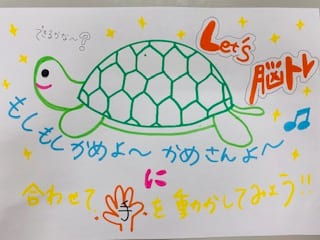 できるかな〜?
Let's
脳トレ
もしもしかめよ〜 かめさんよ〜
に
合わせて 手 を動かしてみよう!!